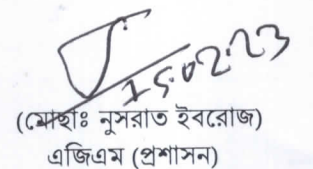 15.02.23
(মোহাঃ নুসরাত ইবরোজ)
এজিএম (প্রশাসন)